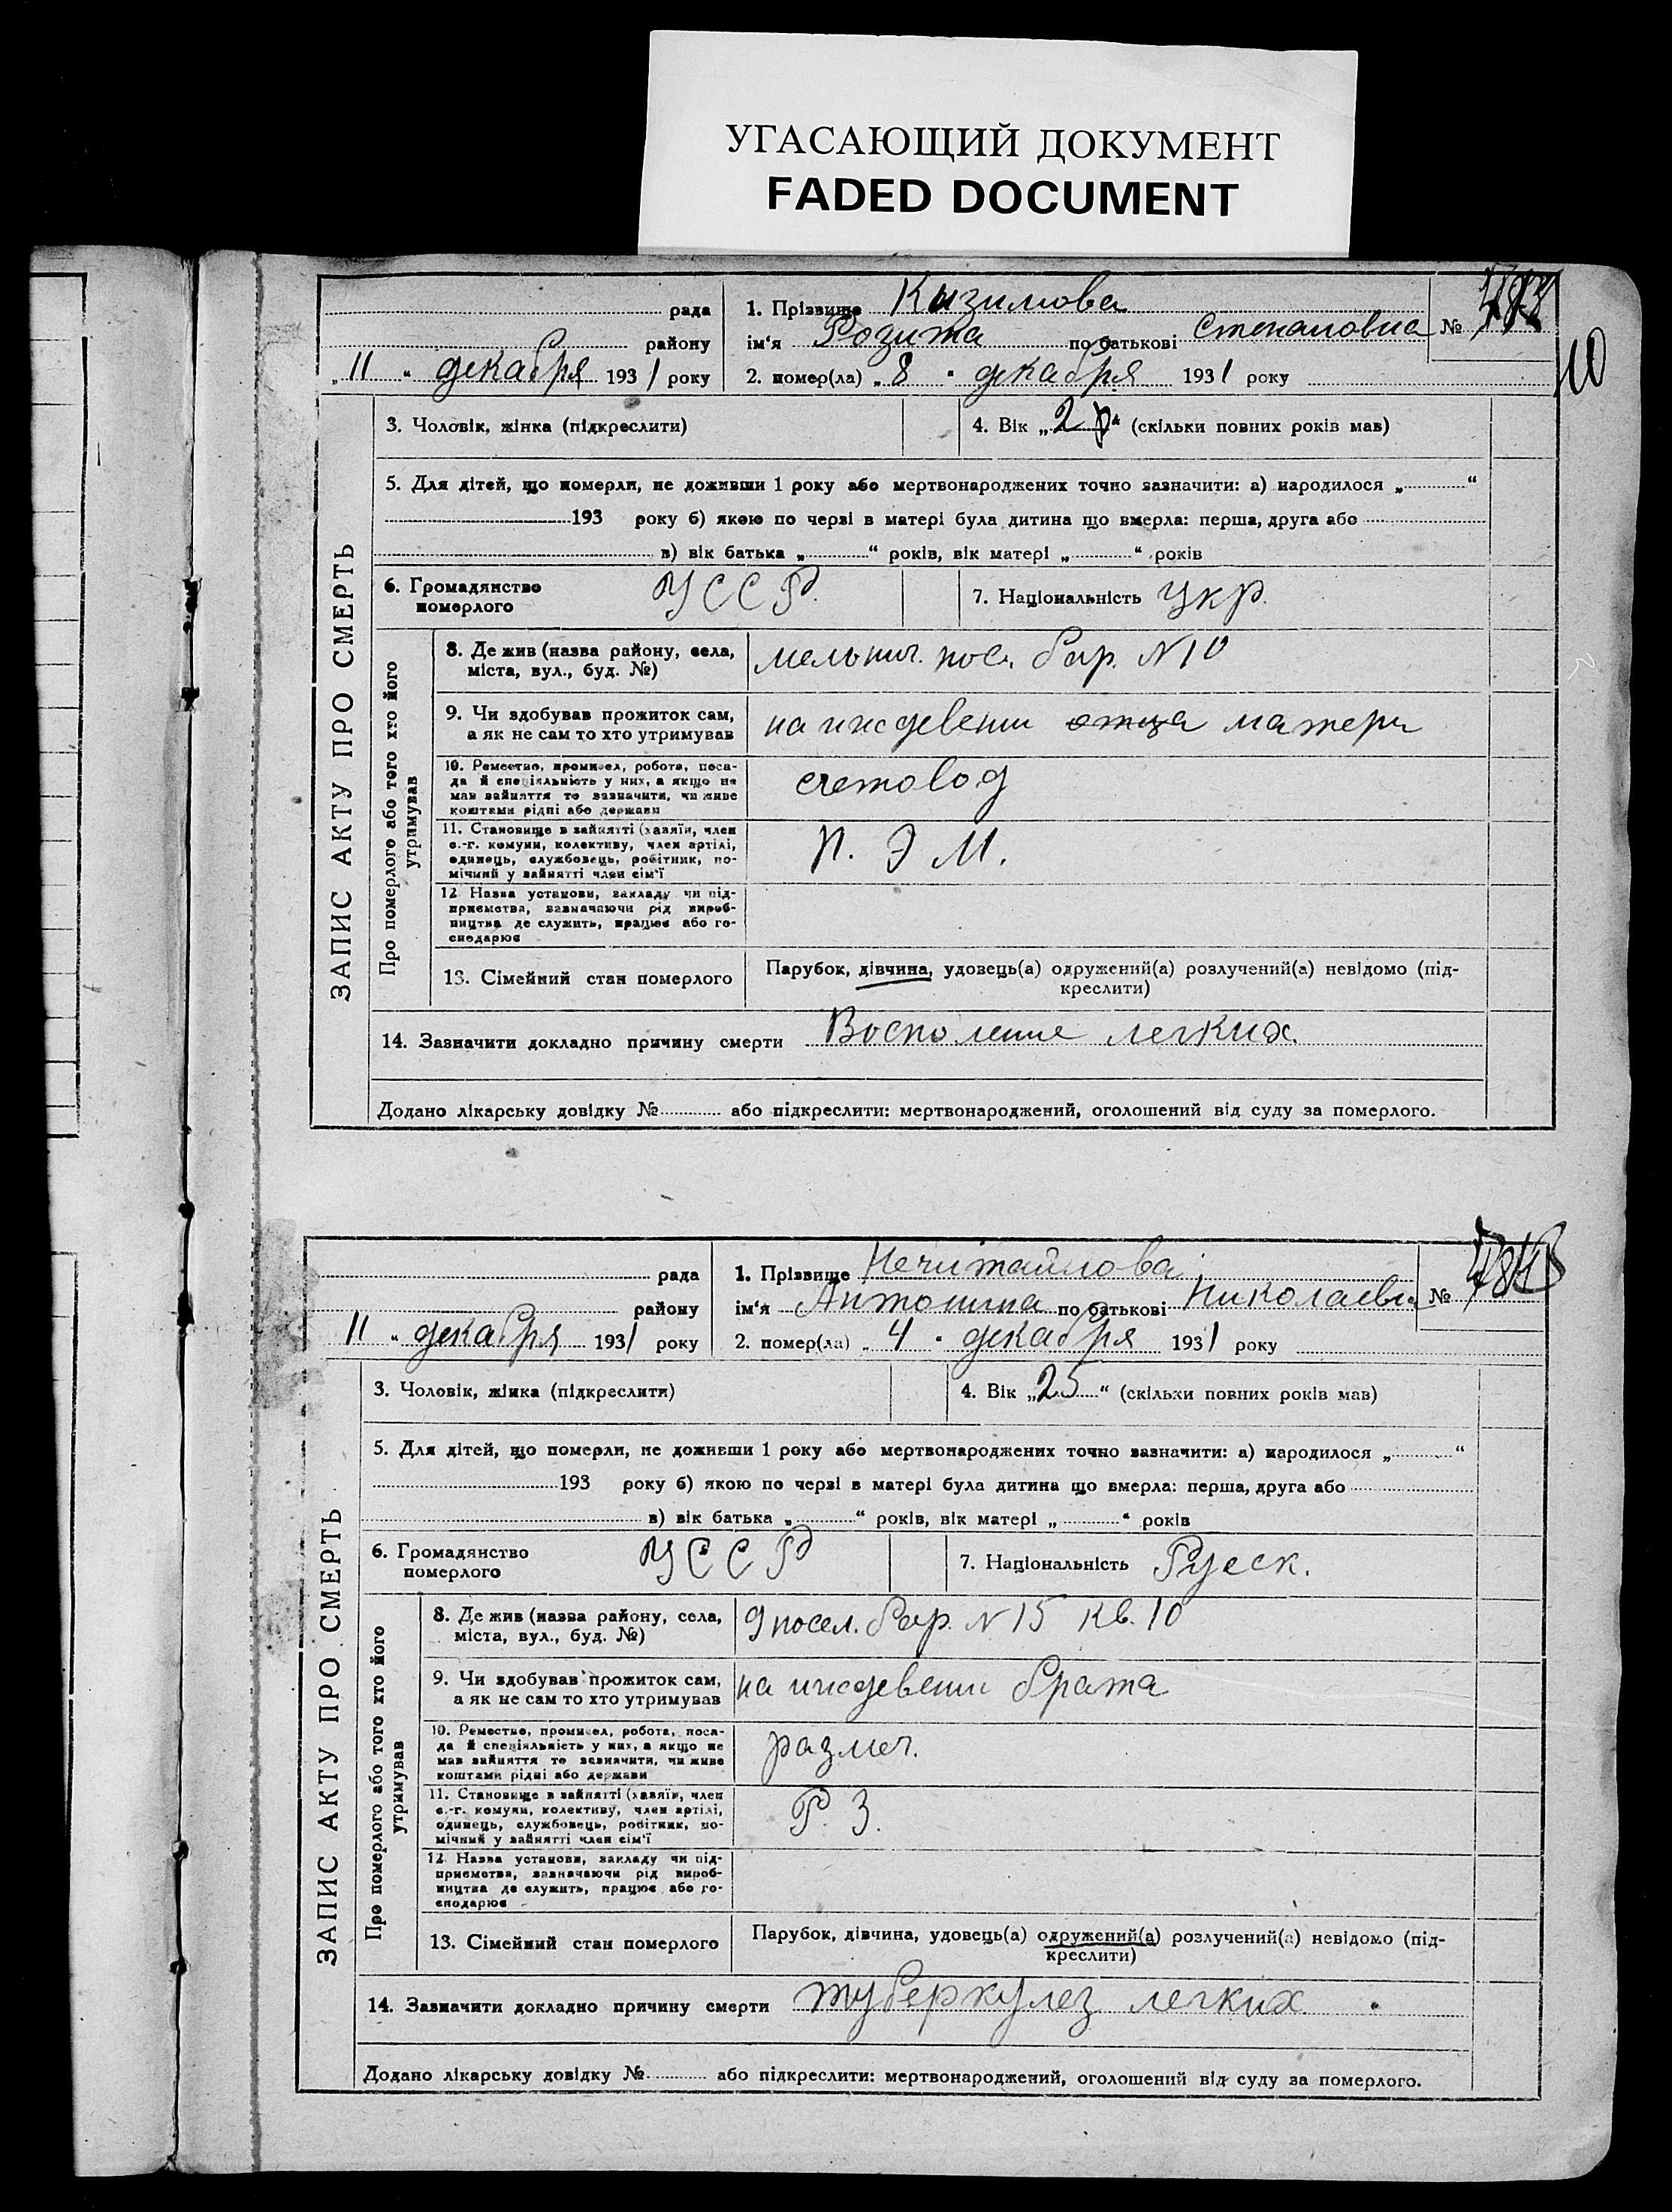 УГАСАЮЩИЙ ДОКУМЕНТ
FADED DOCUMENT
рада
району
„11“ декабря 1931 року
1. Прізвище Кизимова
ім‘я Розита по батькові Степановна
2. помер(ла) „8“ декабря 1931 року
№
10
3. Чоловік, жінка (підкреслити)
4. Вік „2 р“ (скільки повних років мав)
5. Для дітей, що померли, не доживши 1 року або мертвонароджених точно зазначити: а) народилося „ “
193 року б) якою по черзі в матері була дитина що вмерла: перша, друга або
в) вік батька „ “ років, вік матері „ “ років
6. Громадянство померлого УССР.
7. Національність Укр.
ЗАПИС АКТУ ПРО СМЕРТЬ
Про померлого або того хто його утримував
8. Де жив (назва району, села,
міста, вул., буд. №)
мельнич. пос. бар. N 10
9. Чи здобував прожиток сам,
а як не сам то хто утримував
на иждевении отца матери
10. Ремество, промисел, робота, поса-
да й спеціяльність у них, а якщо не
мав зайняття то зазначити, чи живе
коштами рідні або держави
счетовод
11. Становище в зайнятті (хазяїн, член
с.-г. комуни, колективу, член артілі,
одинець, службовець, робітник, по-
мічний у зайнятті член сім‘ї
П. Э М.
12 Назва установи, закладу чи під-
приємства, зазначаючи рід вироб-
ництва де служить, працює або го-
сподарює
13. Сімейний стан померлого
Парубок, дівчина, удовець(а) одружений(а) розлучений(а) невідомо (під-
креслити)
14. Зазначити докладно причину смерти Восполение легких.
Додано лікарську довідку № або підкреслити: мертвонароджений, оголошений від суду за померлого.
рада
району
11 “ декабря 1931 року
1. Прізвище Нечитайлова
ім‘я Антонина по батькові Николаевна
2. помер(ла) „4“ декабря 1931 року
№
3. Чоловік, жінка (підкреслити)
4. Вік „25“ (скільки повних років мав)
5. Для дітей, що померли, не доживши 1 року або мертвонароджених точно зазначити: а) народилося „ “
193 року б) якою по черзі в матері була дитина що вмерла: перша, друга або
в) вік батька „ “ років, вік матері „ “ років
6. Громадянство померлого УССР
7. Національність Русск.
ЗАПИС АКТУ ПРО СМЕРТЬ
Про померлого або того хто його утримував
8. Де жив (назва району, села,
міста, вул., буд. №)
9 посел. бар. N 15 кв. 10
9. Чи здобував прожиток сам,
а як не сам то хто утримував
на иждевении брата
10. Ремество, промисел, робота, поса-
да й спеціяльність у них, а якщо не
мав зайняття то зазначити, чи живе
коштами рідні або держави
размет.
11. Становище в зайнятті (хазяїн, член
с.-г. комуни, колективу, член артілі,
одинець, службовець, робітник, по-
мічний у зайнятті член сім‘ї
Р. З.
12 Назва установи, закладу чи під-
приємства, зазначаючи рід вироб-
ництва де служить, працює або го-
сподарює
13. Сімейний стан померлого
Парубок, дівчина, удовець(а) одружений(а) розлучений(а) невідомо (під-
креслити)
14. Зазначити докладно причину смерти туберкулез легких
Додано лікарську довідку № або підкреслити: мертвонароджений, оголошений від суду за померлого.